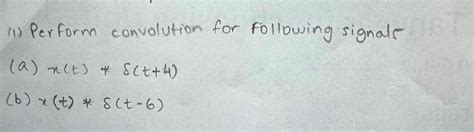 (1) Perform convolution for following signals
(a) x(t) * δ(t+4)
(b) x(t) * δ(t-6)